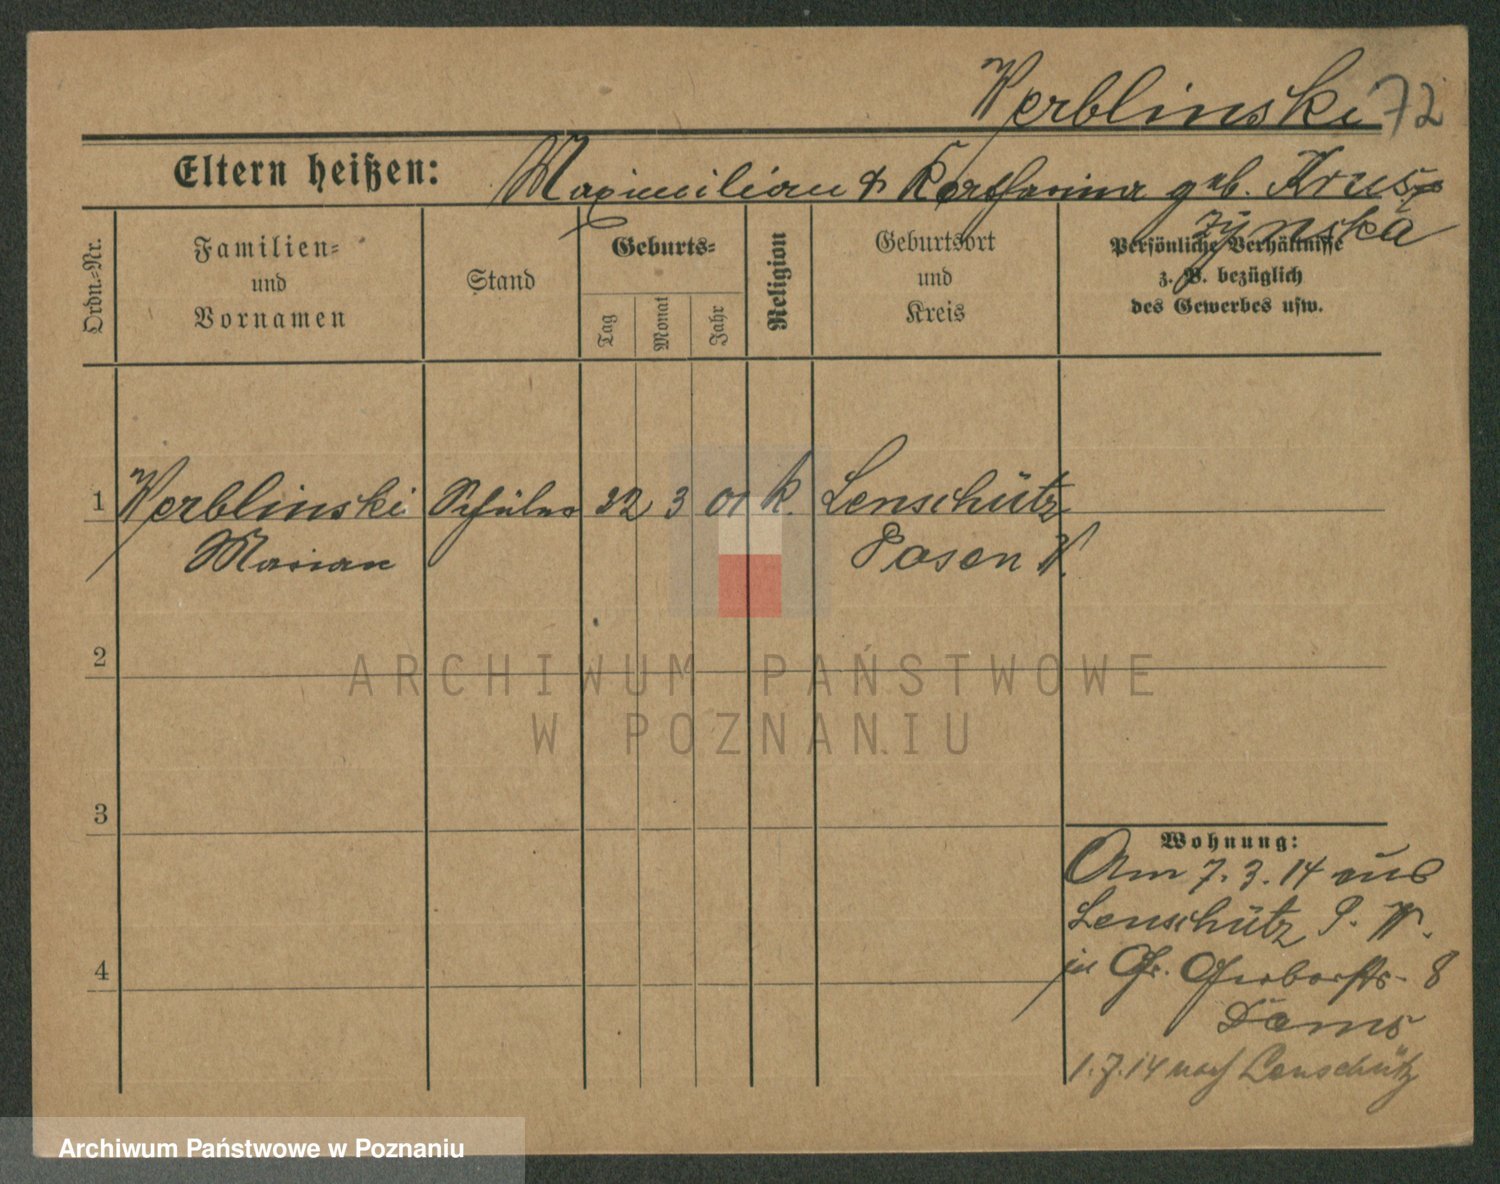 Werblinski 72
Eltern heißen: Maximilian & Katharina geb. Krus-
zynska
Ordn.-Nr.
Familien-
und
Vornamen
Stand
Geburts-
Tag
Monat
Jahr
Religion
Geburtsort
und
Kreis
Persönliche Verhältnisse
z. B. bezüglich
des Gewerbes usw.
1 Werblinski Schüler 22 3 01 K. Lenschütz
Marian Posen W.
2
3
4
Wohnung:
Am 7.3.14 aus
Lenschütz P. W.
in Gr. Gerberstr. 8
1.7.14 nach Lenschütz
ARCHIWUM PAŃSTWOWE
W POZNANIU
Archiwum Państwowe w Poznaniu